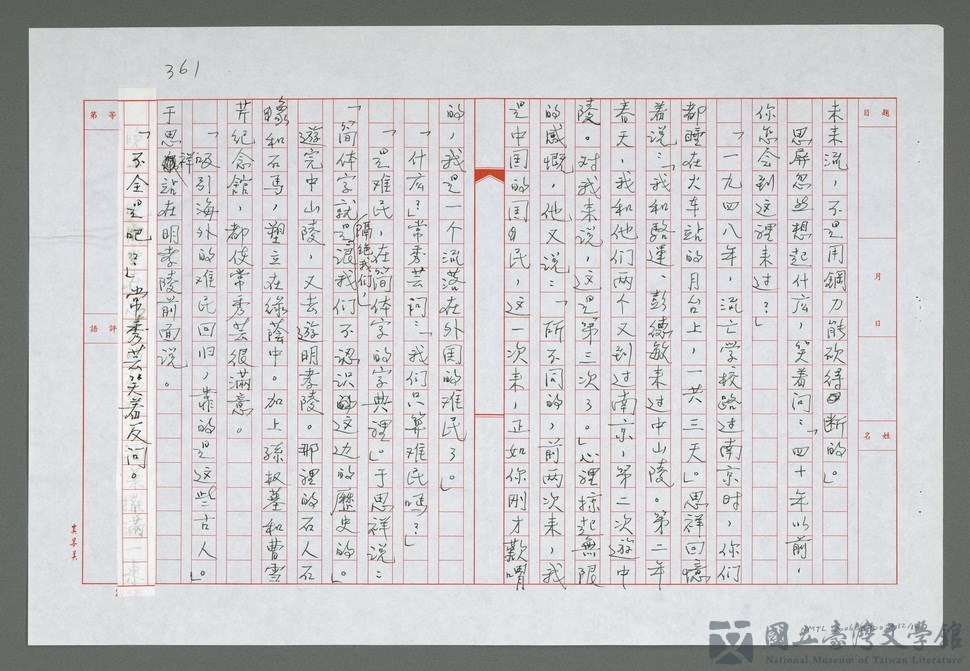 361
題目
月 日
姓名
未来流，不是用鋼刀能砍得断的。」
思屏忽然想起什庅，笑着问：「四十年以前，
你怎会到这裡来过？」
「一九四八年，流亡学校路过南京时，你们
都睡在火车站的月台上，一共三天」。思祥回憶
着说：「我和駱運、彭德敏来过中山陵。第二年
春天，我和他们两个又到过南京，第二次遊中
陵。对我来说，这是第三次了。」心裡掠起無限
的感慨，他又说：「所不同的，前两次来，我
是中国的国民，这一次来，正如你刚才歎喟
的，我是一个流落在外国的难民了。」
「什庅？」常秀芸问：「我们只算难民吗？」
「是难民，在简体字的字典裡」。于思祥说：
「简体字就是隔绝我们，让我们不認识这边的歷史的。」
遊完中山陵，又去遊明孝陵。那裡的石人石
象和石馬，塑立在綠蔭中。加上孫权墓和曹雪
芹纪念館，都使常秀芸很滿意。
「吸引海外的难民回归，靠的是这些古人」。
于思祥站在明孝陵前面说。
「不全是吧？」常秀芸笑着反问。
第 等
評語
國立臺灣文學館
National Museum of Taiwan Literature